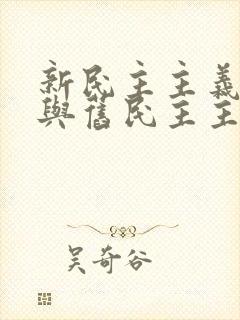 新民主主義
與舊民主主
吳奇谷